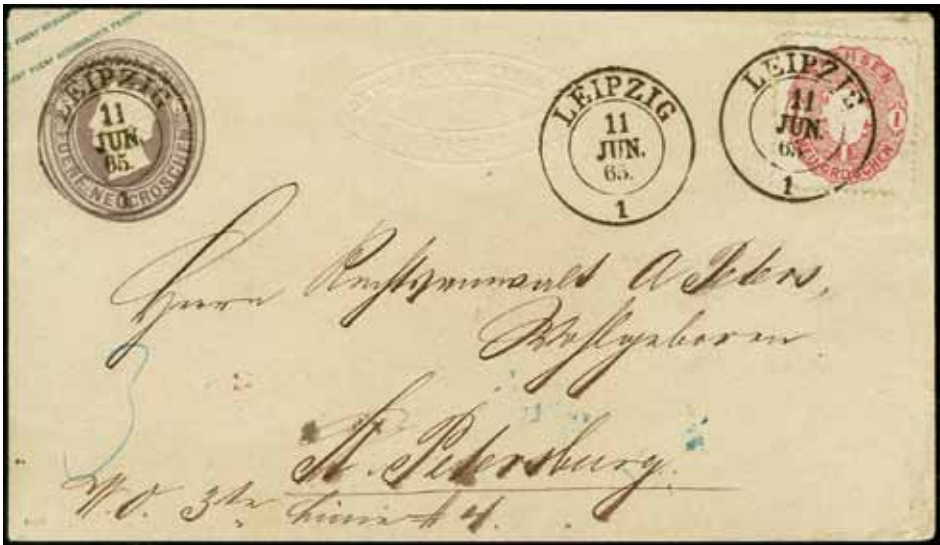 LEIPZIG
11
JUN.
65.
1
NEUGROSCHEN
LEIPZIG
11
JUN.
65.
1
LEIPZIG
11
JUN.
65
1
SACHSEN
1
NEUGROSCHEN
Herrn Rechtsanwalt A Peters,
Wohlgeboren
St. Petersburg.
W. O. 3te Linie # 4.